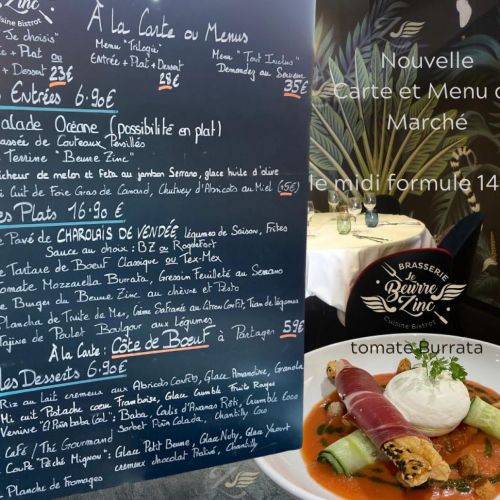 Zinc
Cuisine Bistrot
À la Carte ou Menus
"Je choisis"
Menu "Trilogie"
Menu "Tout Inclus"
+ Plat ou
Entrée + Plat + Dessert
Demandez au Serveur
+ Dessert 23€
29€
35€
Entrées 6.90€
Salade Océane (possibilité en plat)
de Couteaux Persillés
Terrine "Beurre Zinc"
de melon et Feta au jambon Serrano, glace huile d'olive
Cuit de Foie Gras de Canard, Chutney d'Abricots au Miel (+5€)
les Plats 16.90€
Pavé de CHAROLAIS DE VENDÉE légumes de Saison, Frites
Sauce au choix : BZ ou Roquefort
Tartare de Boeuf Classique ou Tex-Mex
Tomate Mozzarella Burrata, Gressin Feuilleté au Serrano
Burger du Beurre Zinc au chèvre et Pesto
Plancha de Truite de Mer, Crème Safranée au Citron Confit, Tian de légumes
Tajine de Poulet Boulgour aux Légumes
À la Carte : Côte de Boeuf à Partager 59€
les Desserts 6.90€
Riz au lait crémeux aux Abricots Confits, Glace Amandine, Granola
Mi cuit Pistache coeur Framboise, Glace Crumble Fruits Rouges
Verrine "(col)", Baba, Coulis d'Ananas Rôti, Crumble Coco
Sorbet Piña Colada, Chantilly Coco
Café / Thé Gourmand
Coupe "Péché Mignon" : Glace Petit Beurre, Glace Nuty, Glace Yaourt
crémeux chocolat Praliné, Chantilly
Planche de Fromages
Nouvelle
Carte et Menu
Marché
le midi formule 14
BRASSERIE
le
Beurre
Zinc
Cuisine Bistrot
tomate Burrata